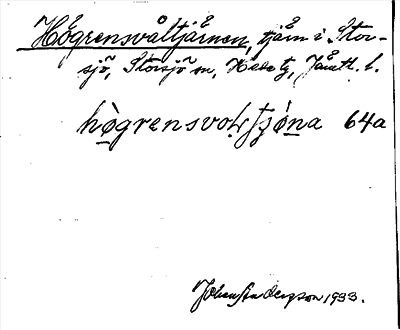 Högrensvåltjårnen, tjärn i Stor-
sjö, Storsjö sn, Hede tg, Jämtl. l.
högrensvoḷtjóna 64a
Johan Anderzson 1933.